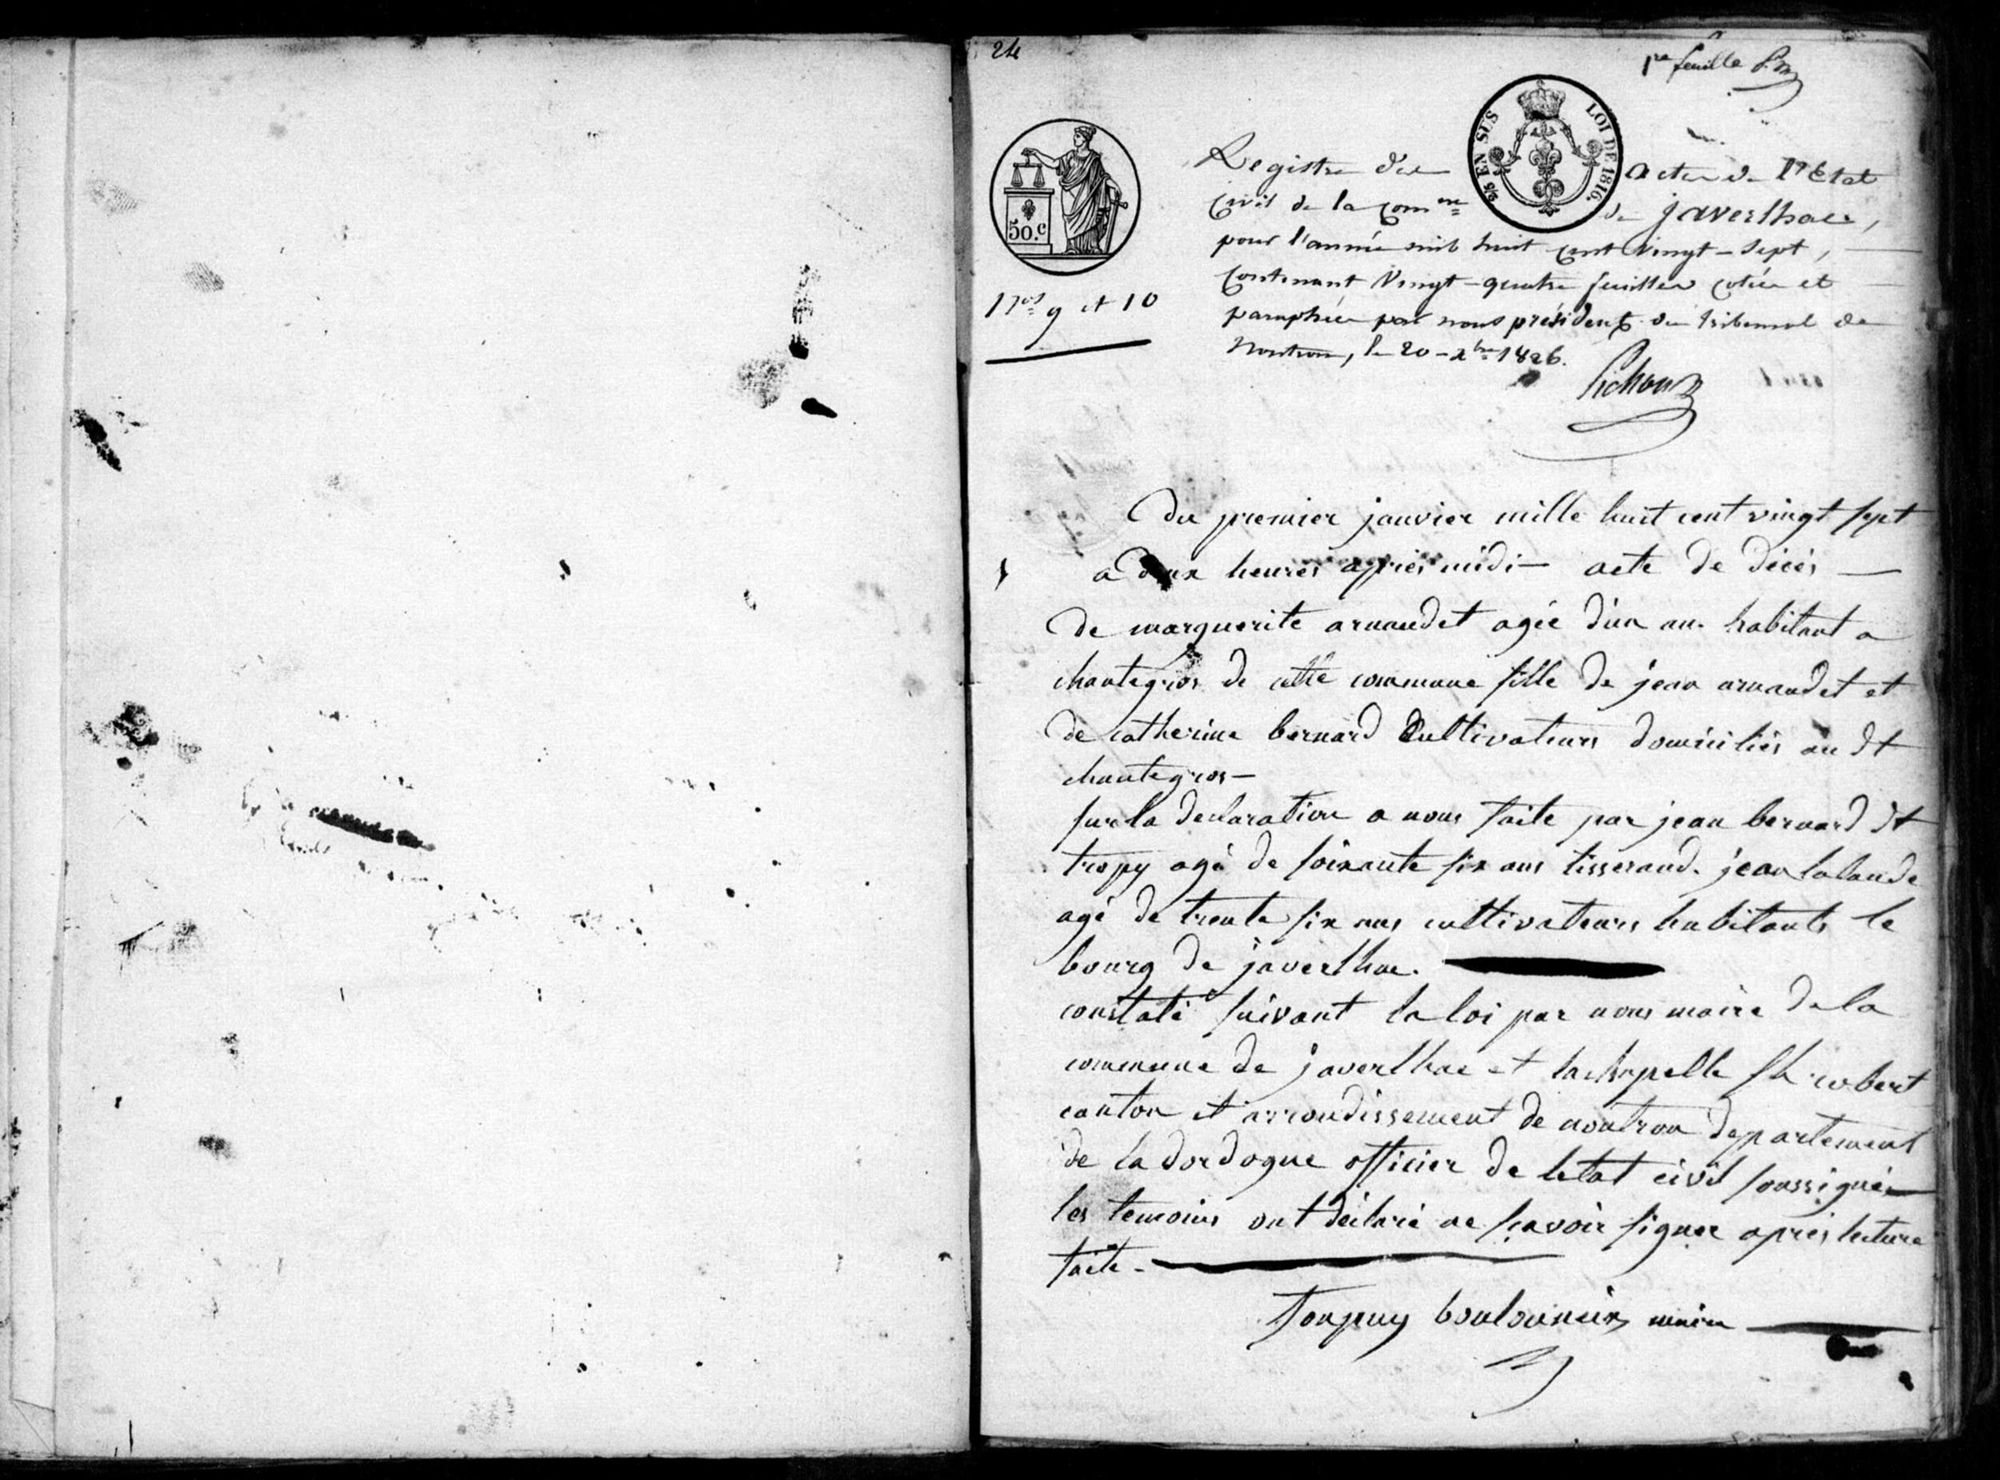 24
1re feuille
2/5 EN SUS
LOI DE 1816.
50.c
Nos 9 et 10
Registre des actes de l'Etat
Civil de la comne de javerlhac,
pour l'année mil huit cent vingt-sept,
contenant vingt-quatre feuilles cotées et
paraphées par nous président du tribunal de
Nontron, le 20 - xbre 1826.
Du premier janvier mille huit cent vingt sept
a deux heures apres midi - acte de décés -
de marguerite arnaudet agée d'un an habitant a
chantegros de cette commune fille de jean arnaudet et
de catherine bernard cultivateurs domiciliés au dt
chantegros -
sur la declaration a nous faite par jean bernard dt
tropy agé de soixante six ans tisserand. jean lalande
agé de trente six ans cultivateurs habitants le
bourg de javerlhac.
constaté suivant la loi par nous maire de la
commune de javerlhac et lachapelle st robert
canton et arrondissement de nontron departement
de la dordogne officier de letat civil soussigné
les temoins ont déclaré ne savoir signer aprés lecture
faite -
maire